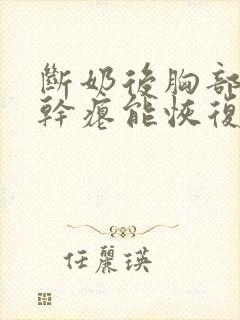 斷奶後胸部
幹癟能恢復
任麗瑛